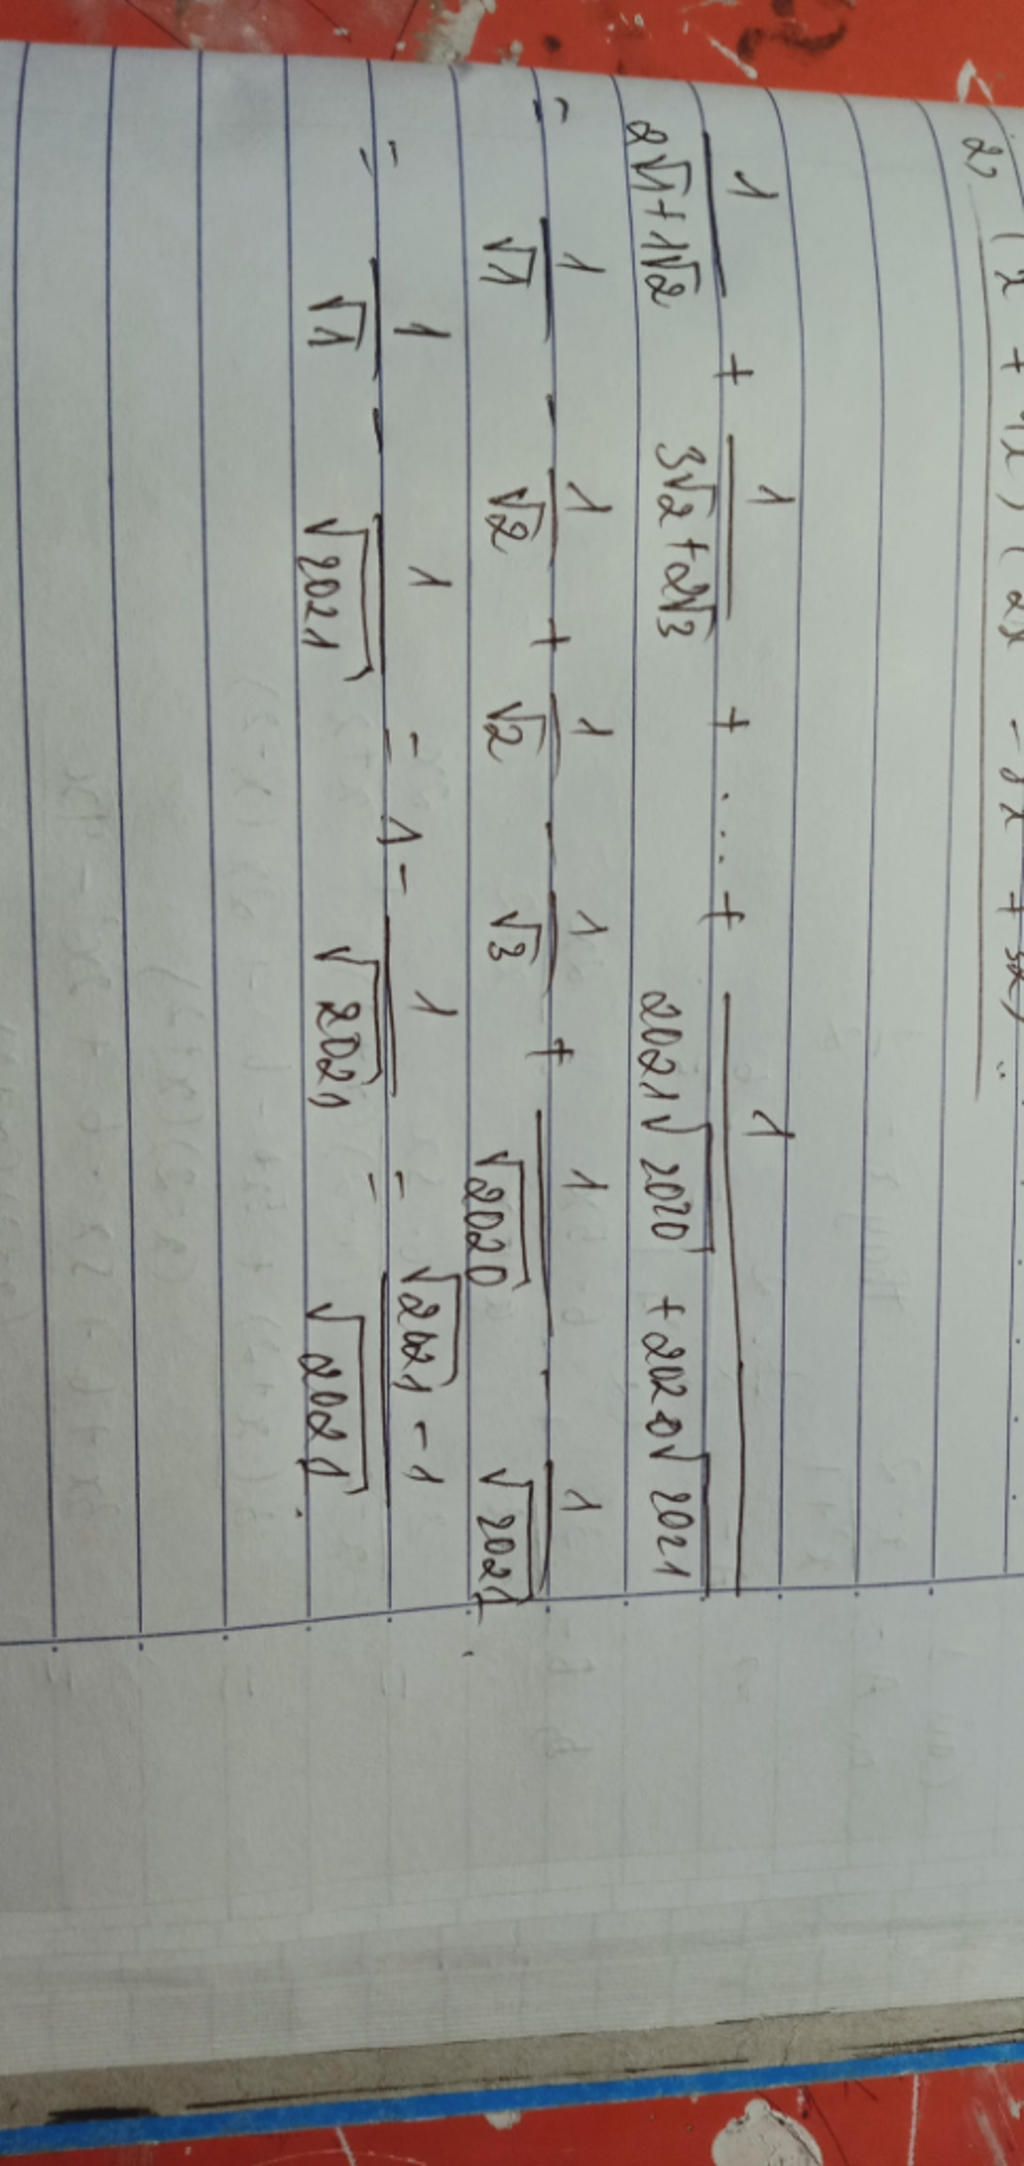 2) (x + 4x) (2x - 5x + 3x)
1/(2√1+1√2) + 1/(3√2+2√3) + ... + 1/(2021√2020 + 2020√2021)
= 1/√1 - 1/√2 + 1/√2 - 1/√3 + 1/√2020 - 1/√2021
= 1/√1 - 1/√2021 = 1 - 1/√2021 = (√2021 - 1)/√2021.